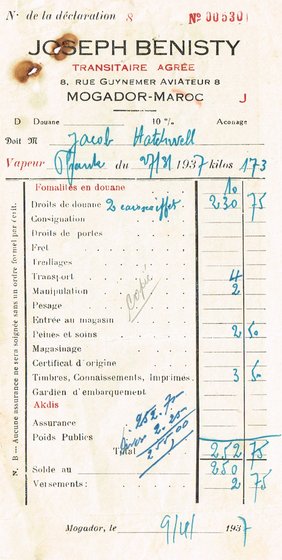 N° de la déclaration 8 N° 005301
JOSEPH BENISTY
TRANSITAIRE AGRÉE
8, RUE GUYNEMER AVIATEUR 8
MOGADOR-MAROC J
D Douane 10 % Aconage
Doit M Jacob Hatchwell
Vapeur du 27/31 1937 kilos 173
Fomalités en douane 10
Droits de douane 2 caisses effets 230 75
Consignation
Droits de portes
Fret
Treillages
Transport 4
Manipulation 2
Pesage
Entrée au magasin
Peines et soins 2 50
Magasinage
Certificat d'origine
Timbres, Connaissements, Imprimés. 3 50
Gardien d'embarquement
Akdis
Assurance
Poids Publics
Total 252 75
Solde au 250
Versements: 2 75
copie
252.75
2.25
255,00
Mogador, le 9/4/ 1937
N. B — Aucune assurance ne sera soignée sans un ordre formel par écrit.